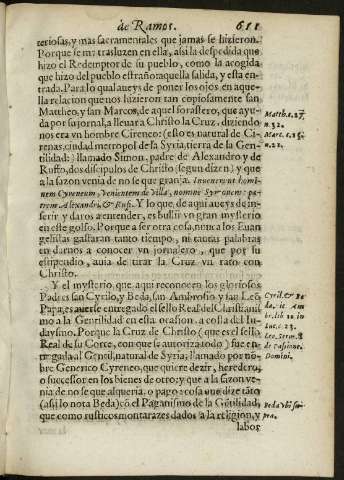 de Ramos. 611
teriosas, y mas sacramentales que jamas se hizieron.
Porque se me trasluzen en ella, assi la despedida que
hizo el Redemptor de su pueblo, como la acogida
que hizo del pueblo estraño aquella salida, y esta en-
trada. Para lo qual aueys de poner los ojos en aque-
lla relacion que nos hizieron tan copiosamente san
Mattheo, y san Marcos, de aquel forastero, que ayu-
da por su jornal, a lleuar a Christo la Cruz, diziendo
nos era vn hombre Cireneo: (esto es natural de Ci-
renas, ciudad metropol de la Syria, tierra de la Gen-
tilidad:) llamado Simon, padre de Alexandro y de
Ruffo, dos discipulos de Christo (segun dizen) y que
a la sazon venia de no se que granja. Inuenerunt homi-
nem Cyreneum, venientem de villa, nomine Syrenem: pa-
trem Alexandri, & Rufi. Y lo que, de aqui aueys de in-
ferir y daros a entender, es bullir vn gran mysterio
en este golfo. Porque a ser otra cosa, nun a los Euan
gelistas gastaran tanto tiempo, ni tantas palabras
en darnos a conocer vn jornalero, que por su
estipendio, auia de tirar la Cruz vn rato con
Christo.
Y el mysterio, que aqui reconocen los gloriosos
Padres san Cyrilo, y Beda, san Ambrosio y san Leõ
Papa, es auerse entregado el sello Real del Christianis
mo a la Gentilidad en esta ocasion, a costa del Iu-
daysmo. Porque la Cruz de Christo (que es el sello
Real de su Corte, con que se autoriza todo) fue en-
tregada al Gentil, natural de Syria; llamado por nõ-
bre Generico Cyreneo, que quiere dezir, heredero,
o successor en los bienes de otro; y que a la sazon ve-
nia de no se que alqueria, o pago: cosa que dize tãto
(assi lo nota Beda) cõ el Paganismo de la Gẽtilidad,
que como rusticos montarazes dados a la religion, y
labos
Matth. c. 27.
n. 32.
Marc. c. 15.
n. 21.
Cyril. & Be
da. ic Am
br. lib. 10 in
Luc. c. 23.
Leo. serm. 8
de passione.
Domini.
Beda vbi su-
pra.